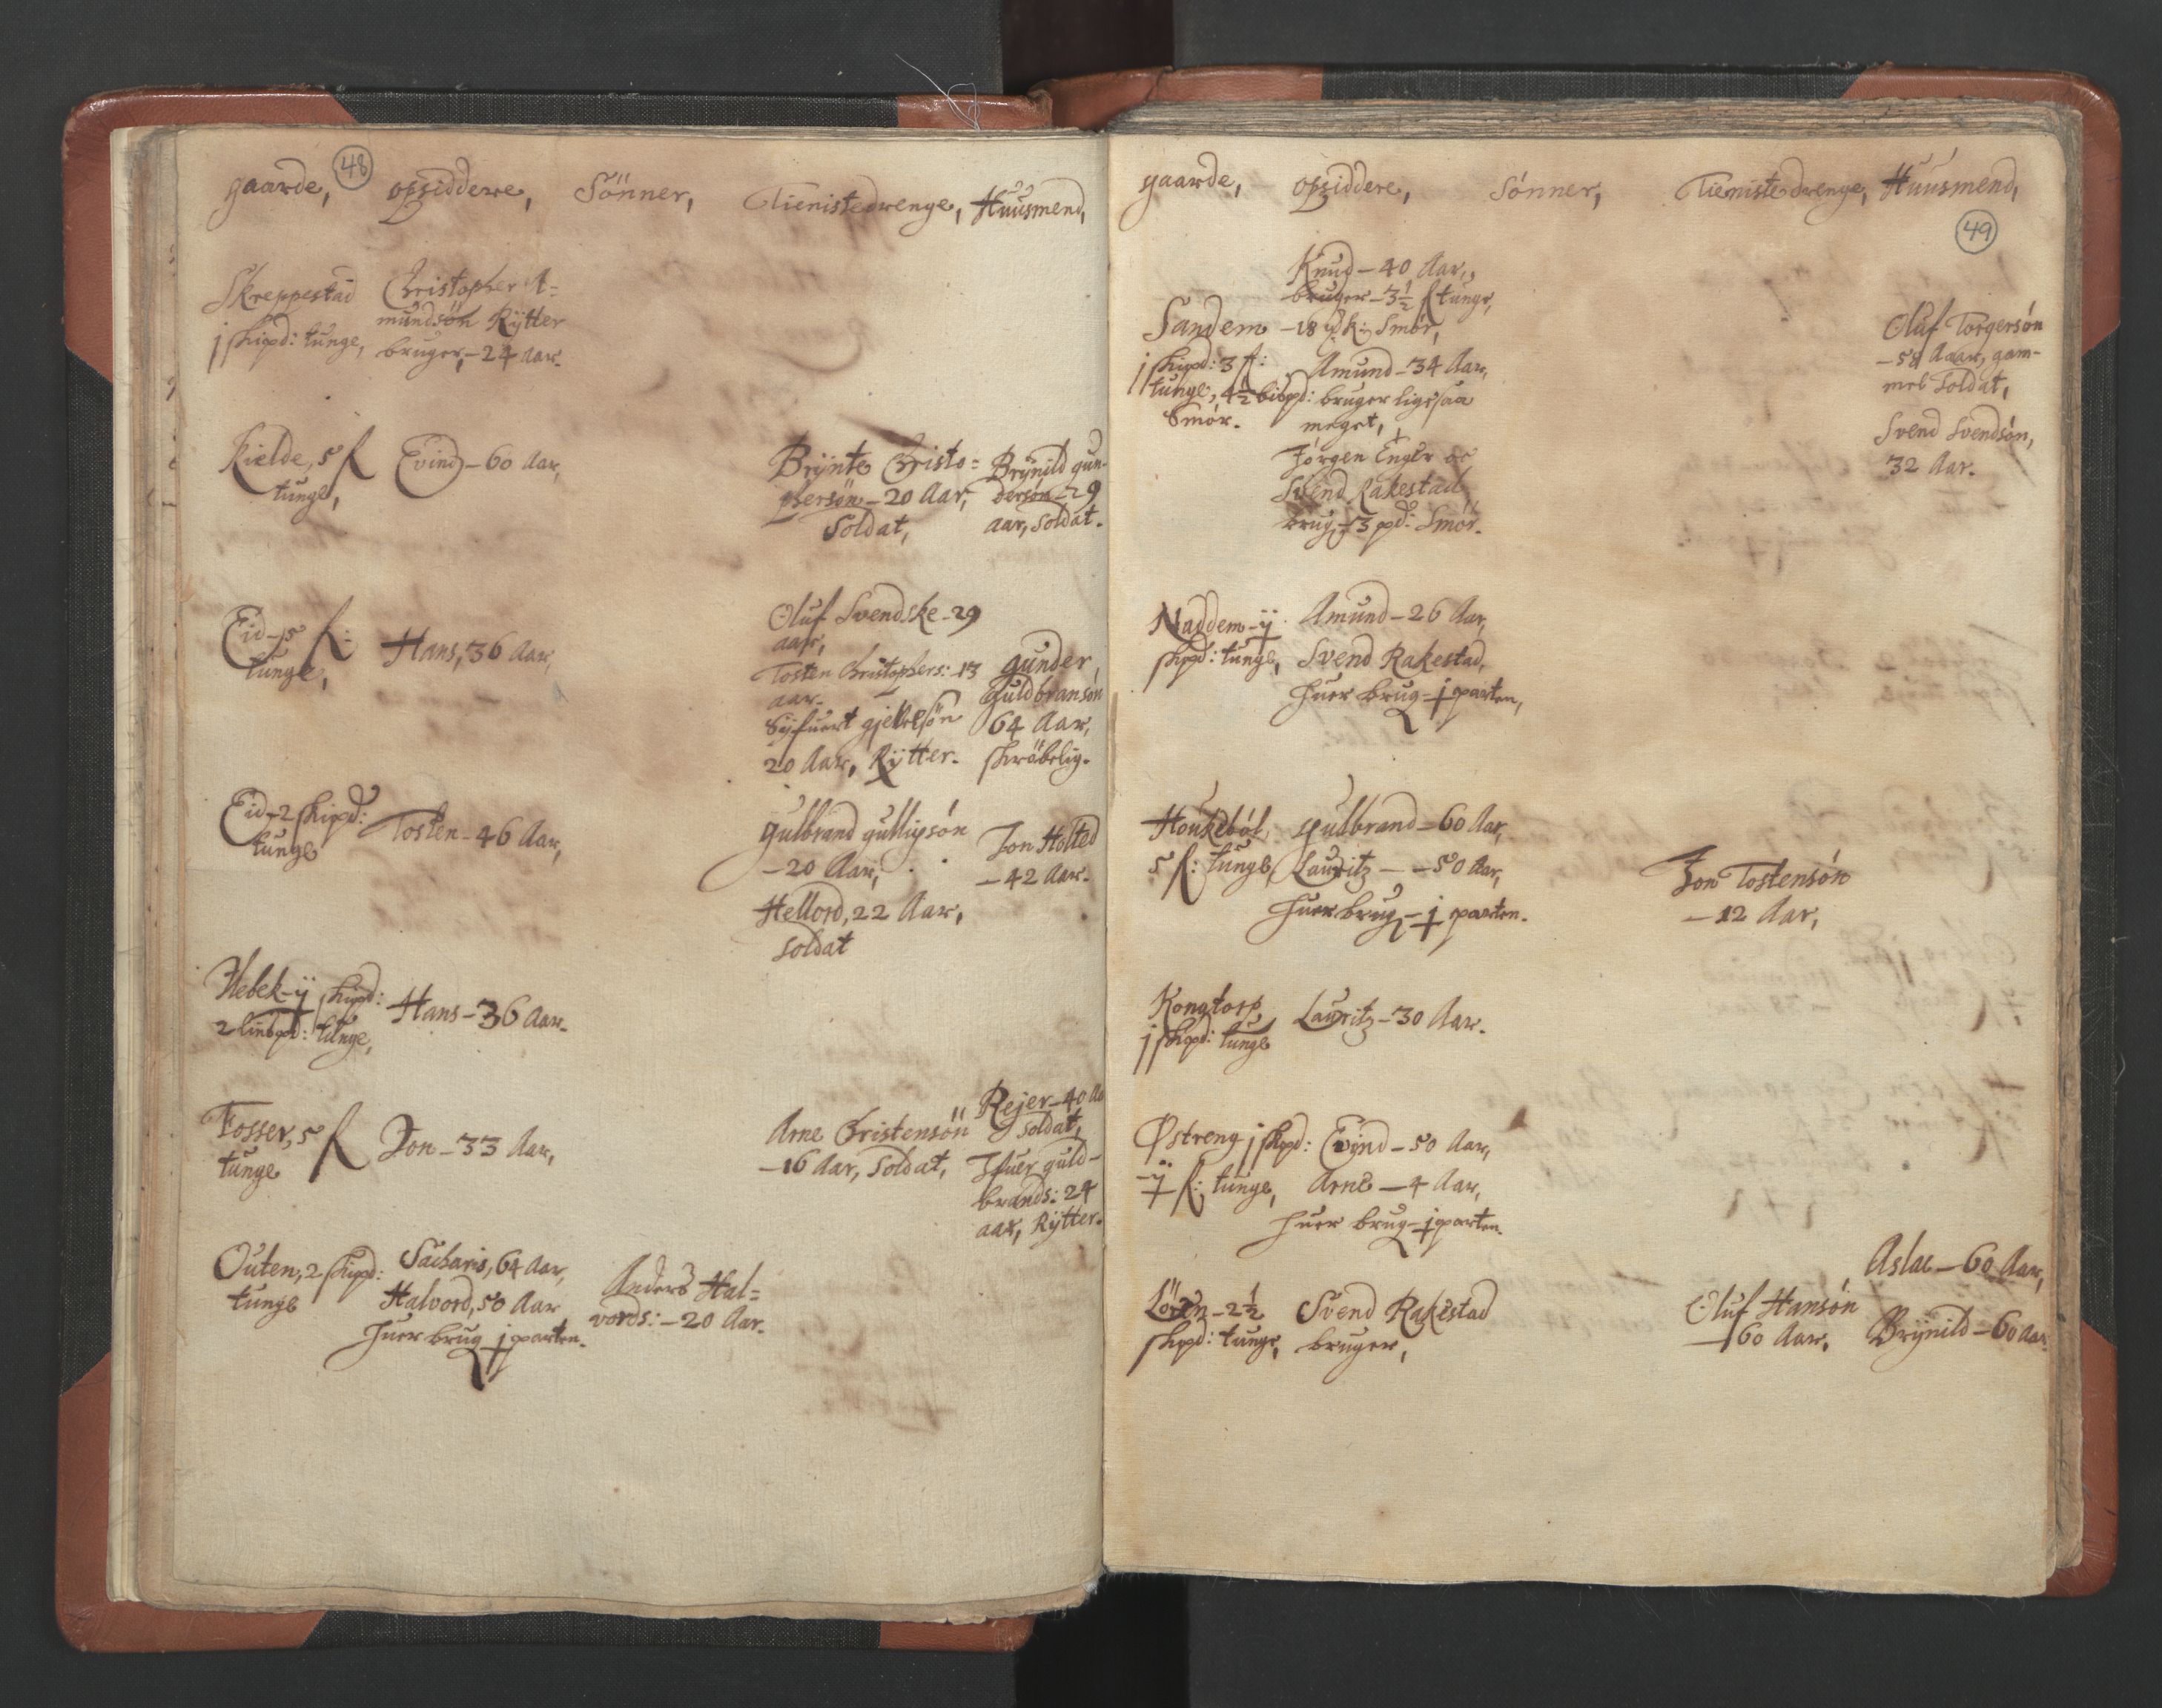 48
gaarde, opsiddere, Sönner, Tienistedrenge, Huusmend,
Skreppestad Christopher A=
mundsön Rÿtter
j skipd: tunge, bruger, - 24 Aar.
Kielde, 5 Evind - 60 Aar,
tunge,
Brÿnte Christo=
phersön - 20 Aar,
Soldat,
Brÿnild gun-
dersön - 29
aar, Soldat.
Eid - 5
tunge,
Hans, 36 Aar,
Oluf Svendske - 29
aar,
Tosten Christophers: - 13
aar.
Sÿfuert gjellesön
20 Aar, Rÿtter.
gunder
guldbransön
64 Aar,
skröbelig.
Eid - 2 skipd:
tunge
Tosten - 46 Aar,
gulbrand gullipsön
- 20 Aar,
Hellord, 22 Aar,
soldat
Jon Holted
- 42 Aar.
Hebek - ij skipd:
2 lispd: tunge,
Hans - 36 Aar.
Fosser, 5
tunge
Jon - 33 Aar,
Arne Christensön
- 16 Aar, Soldat,
Rejer - 40 Aa
Soldat,
Ifuer guld-
brands: 24
aar, Rÿtter.
Outen, 2 skipd:
tunge
Sacharis, 64 Aar,
Halvord, 50 Aar
huer brug j parten.
Anders Hal=
vords: - 20 Aar.
gaarde, opsiddere, Sönner, Tienistedrenge, Huusmend,
49
Sandem
j skipd: 3
tunge, 4½ bispd:
Smör.
Knud - 40 Aar,
bruger - 3½ tunge,
- 18 Smör,
Amund - 34 Aar,
bruger ligesaa
meget,
Jörgen Enger oc
Svend Rakestad
brug - 13 pd: Smör.
Oluf Torgersön
- 58 Aar, gam-
mel Soldat,
Svend Svendsön,
32 Aar.
Naddem - ij
skipd: tunge,
Amund - 26 Aar,
Svend Rakestad,
huer brug - j parten,
Houkeböl,
5 tunge,
gulbrand - 60 Aar,
Lauritz - - 50 Aar,
huer brug - j parten.
Jon Tostensön
- 12 Aar,
Kongtorp,
j skipd: tunge
Lauritz - 30 Aar.
Østreng j skipd:
- ij tunge,
Evind - 50 Aar,
Arne - 4 Aar,
huer brug - j parten.
Lören - 2½
skipd: tunge,
Svend Rakestad
bruger,
Oluf Hansön
- 60 Aar.
Aslae - 60 Aar,
Brÿnild - 60 Aar.